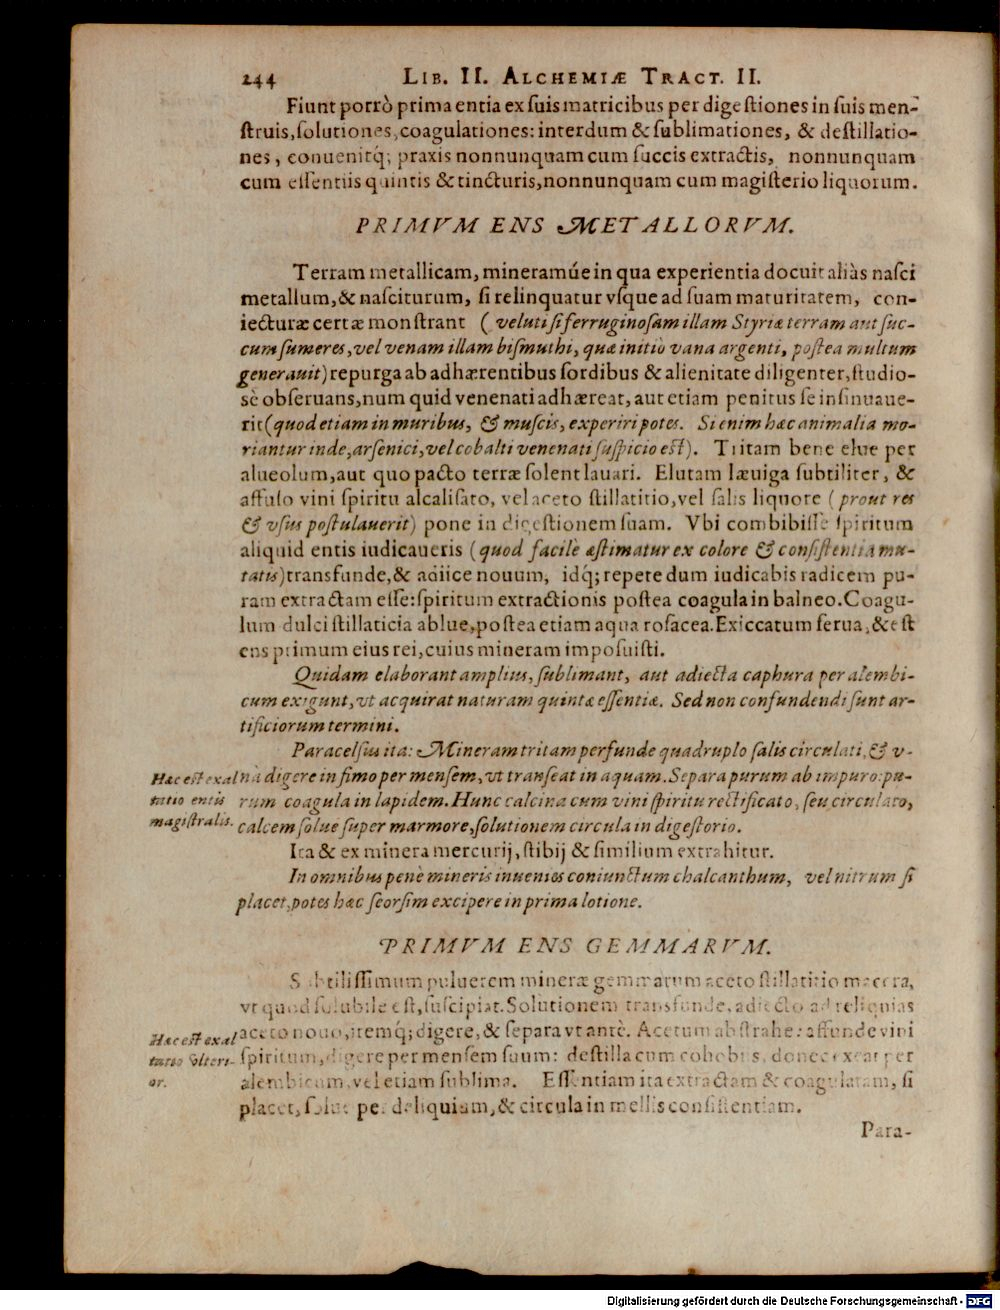 244 LIB. II. ALCHEMIÆ TRACT. II.
Fiunt porrò prima entia ex suis matricibus per digestiones in suis men-
struis, solutiones, coagulationes: interdum & sublimationes, & destillatio-
nes, conuenitq́; praxis nonnunquam cum succis extractis, nonnunquam
cum essentiis quintis & tincturis, nonnunquam cum magisterio liquorum.
PRIMVM ENS METALLORVM.
Terram metallicam, mineramúe in qua experientia docuit aliàs nasci
metallum, & nasciturum, si relinquatur vsque ad suam maturitatem, con-
iecturæ certæ monstrant (veluti si ferruginosam illam Styriæ terram aut suc-
cum sumeres, vel venam illam bismuthi, quæ initiò vana argenti, postea multum
generauit) repurga ab adhærentibus sordibus & alienitate diligenter, studio-
sè obseruans, num quid venenati adhæreat, aut etiam penitus se insinuaue-
rit (quod etiam in muribus, & muscis, experiri potes. Si enim hæc animalia mo-
riantur inde, arsenici, vel cobalti venenati suspicio est). Tritam bene elue per
alueolum, aut quo pacto terræ solent lauari. Elutam læuiga subtiliter, &
affuso vini spiritu alcalisato, vel aceto stillatitio, vel salis liquore (prout res
& vsus postulauerit) pone in digestionem suam. Vbi combibisse spiritum
aliquid entis iudicaueris (quod facilè æstimatur ex colore & consistentia mu-
tatis) transfunde, & adiice nouum, idq́; repete dum iudicabis radicem pu-
ram extractam esse: spiritum extractionis postea coagula in balneo. Coagu-
lum dulci stillaticia ablue, postea etiam aqua rosacea. Exiccatum serua, & est
ens primum eius rei, cuius mineram imposuisti.
Quidam elaborant amplius, sublimant, aut adiecta caphura per alembi-
cum exigunt, vt acquirat naturam quintæ essentiæ. Sed non confundendi sunt ar-
tificiorum termini.
Paracelsus ita: Mineram tritam perfunde quadruplo salis circulati, & v-
nà digere in fimo per mensem, vt transeat in aquam. Separa purum ab impuro: pu-
rum coagula in lapidem. Hunc calcina cum vini spiritu rectificato, seu circulato,
calcem solue super marmore, solutionem circula in digestorio.
Hæc est exal
tatio entis
magistralis.
Ita & ex minera mercurij, stibij & similium extrahitur.
In omnibus penè mineris inuenies coniunctum chalcanthum, vel nitrum si
placet, potes hæc seorsim excipere in prima lotione.
PRIMVM ENS GEMMARVM.
Subtilissimum puluerem mineræ gemmarum aceto stillatitio macera,
vt quod solubile est, suscipiat. Solutionem transfunde, adiecto ad reliquias
aceto nouo, itemq́; digere, & separa vt antè. Acetum abstrahe: affunde vini
spiritum, digere per mensem suum: destilla cum cohobiis, donec exeat per
alembicum, vel etiam sublima. Essentiam ita extractam & coagulatam, si
placet, solue per deliquium, & circula in mellis consistentiam.
Hæc est exal
tatio vlteri-
or.
Para-
Digitalisierung gefördert durch die Deutsche Forschungsgemeinschaft - DFG